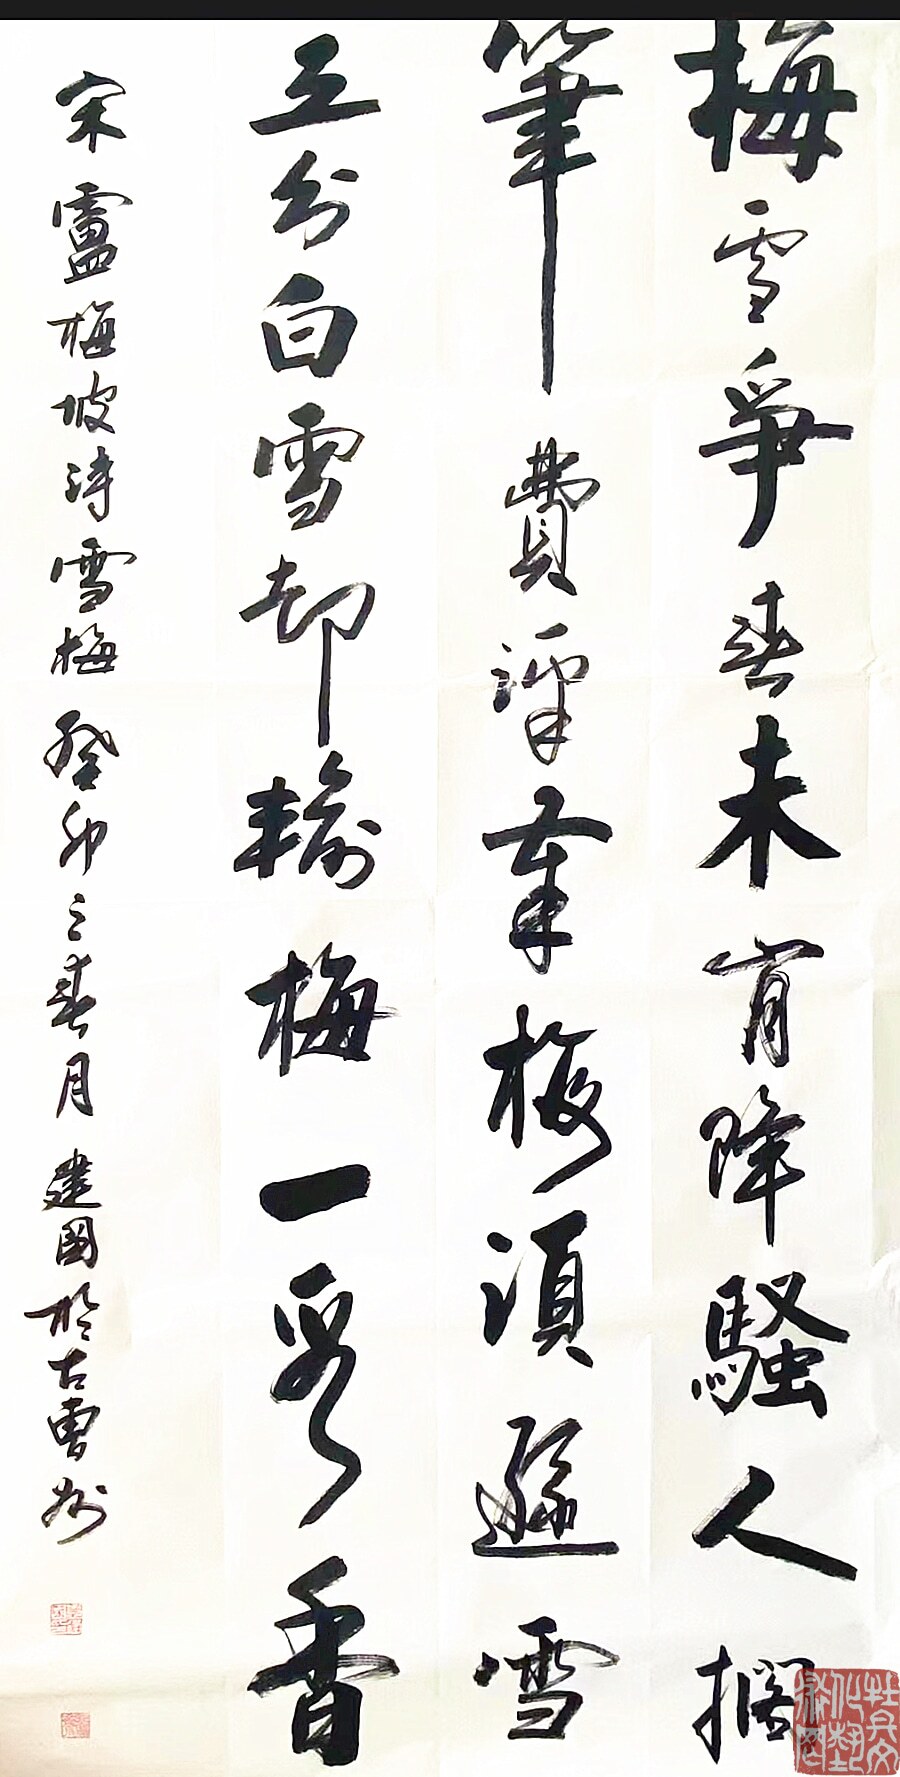 梅雪爭春未肯降騷人擱
筆費評章梅須遜雪
三分白雪却輸梅一段香
宋盧梅坡詩雪梅 癸卯之春月 建國於古曹州